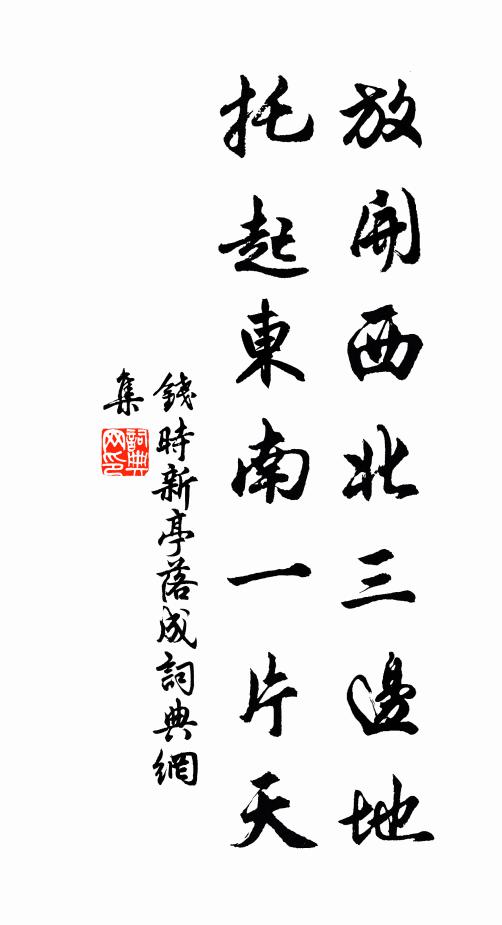 放開西北三邊地
托起東南一片天
錢時新亭落成詞典網
集
詞典
网印